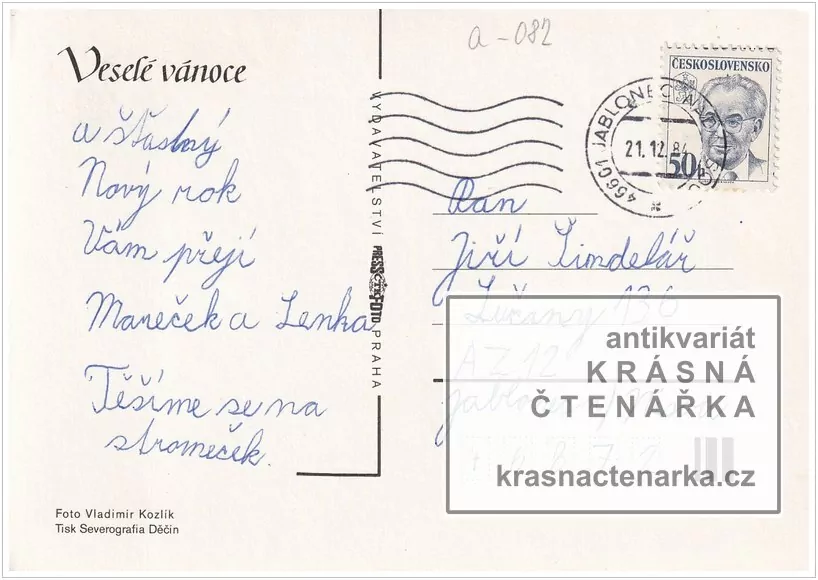 a-082
Veselé vánoce
a šťastný
Nový rok
Vám přejí
Mareček a Lenka
Těšíme se na
stromeček.
Foto Vladimír Kozlík
Tisk Severografia Děčín
VYDAVATELSTVÍ PRESSFOTO PRAHA
ČTK
ČESKOSLOVENSKO
50h
46601 JABLONEC NAD NISOU
21.12.84
Pan
Jiří Šindelář
Lučany 136
AZ 12
antikvariát
KRÁSNÁ
ČTENÁŘKA
krasnactenarka.cz